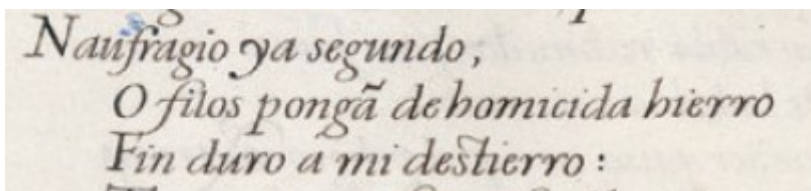 Naufragio ya segundo,
O filos pongã de homicida hierro
Fin duro a mi destierro: